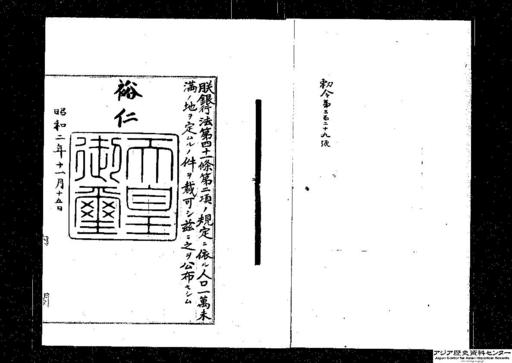 勅令第三百二十九号
朕銀行法第四十一條第二項ノ規定ニ依ル人口一萬未
満ノ地ヲ定ムルノ件ヲ裁可シ茲ニ之ヲ公布セシム
裕仁
天皇
御璽
昭和二年十一月十五日
内閣
アジア歴史資料センター
Japan Center for Asian Historical Records